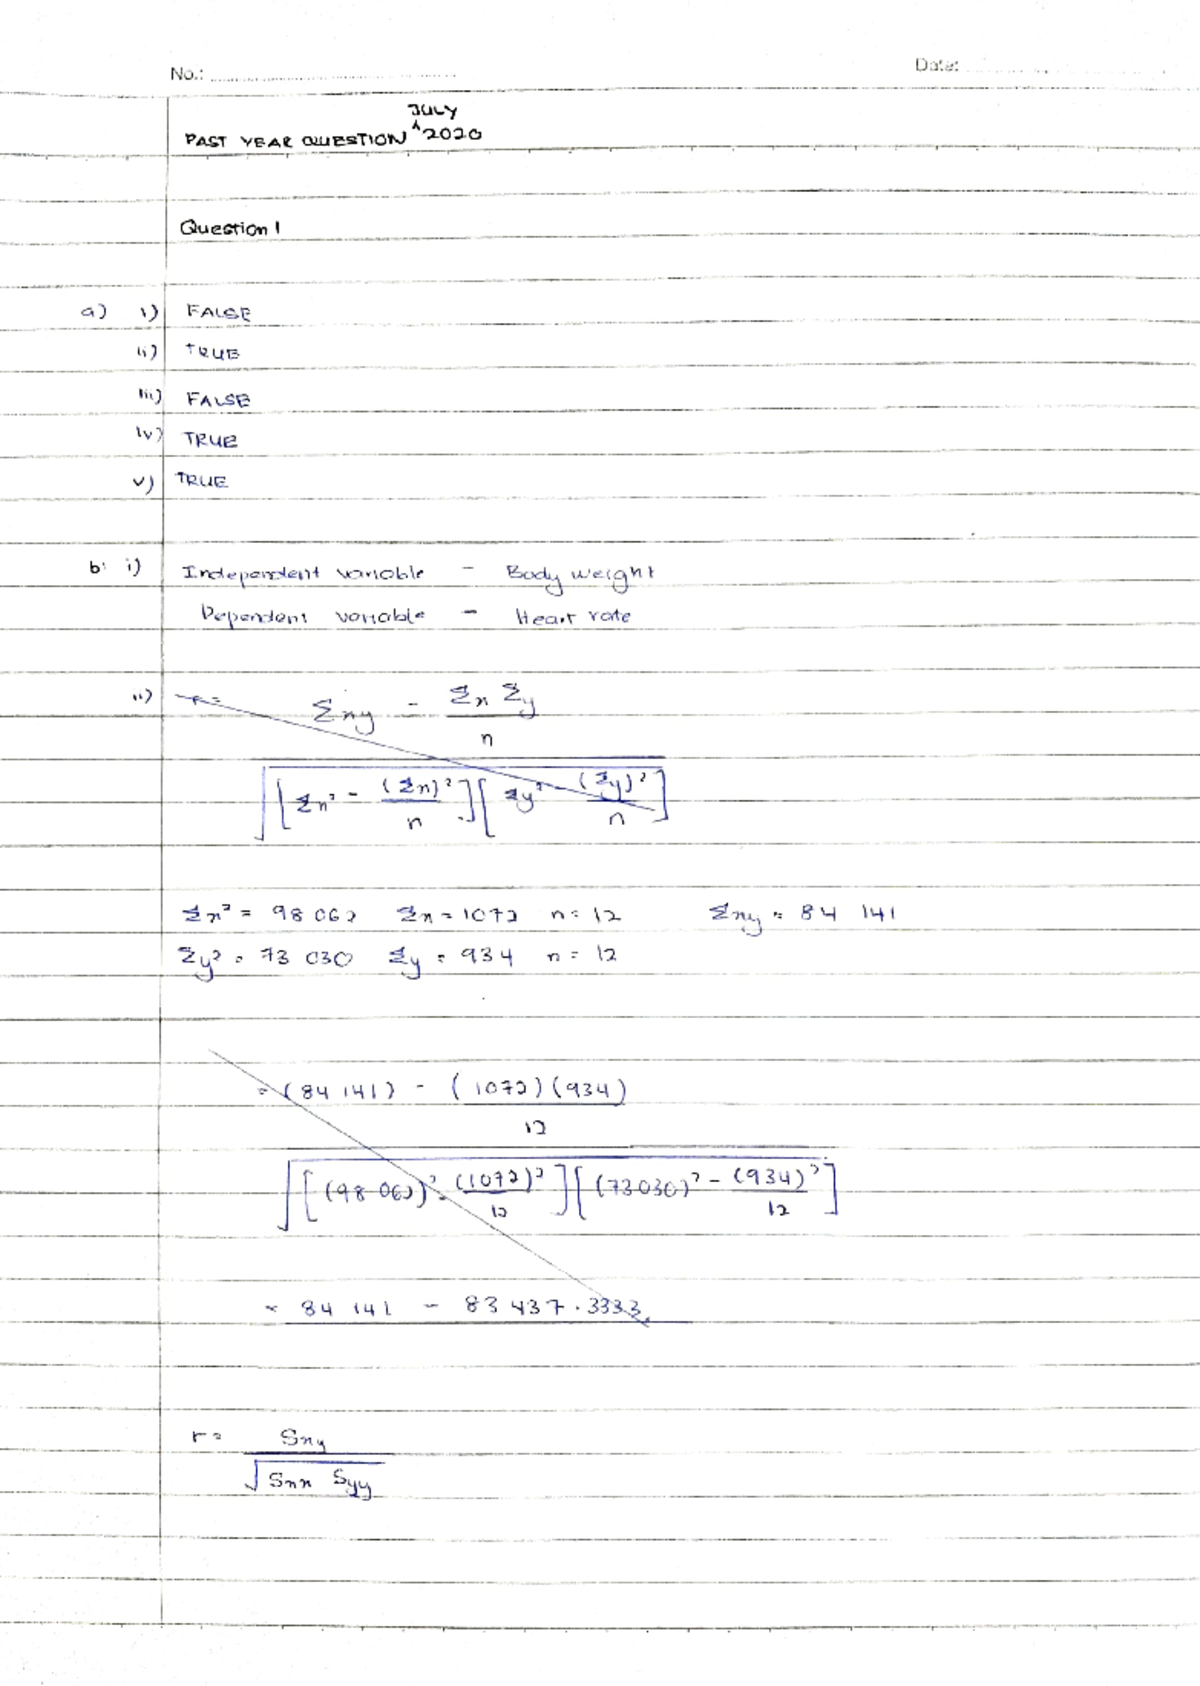 No.: Date:
JULY
PAST YEAR QUESTION ^ 2020
Question 1
a) i) FALSE
ii) TRUE
iii) FALSE
iv) TRUE
v) TRUE
b: i) Independent variable - Body weight
Dependent variable - Heart rate
ii) r = Σxy - Σx Σy
n
√[Σx² - (Σx)²/n][Σy² - (Σy)²/n]
Σx² = 98 062 Σx = 1072 n = 12 Σxy = 84 141
Σy² = 73 030 Σy = 934 n = 12
= (84 141) - (1072)(934)
12
√[(98 062)² - (1072)²/12][(73030)² - (934)²/12]
= 84 141 - 83 437.3333
r = Sxy
√Sxx Syy